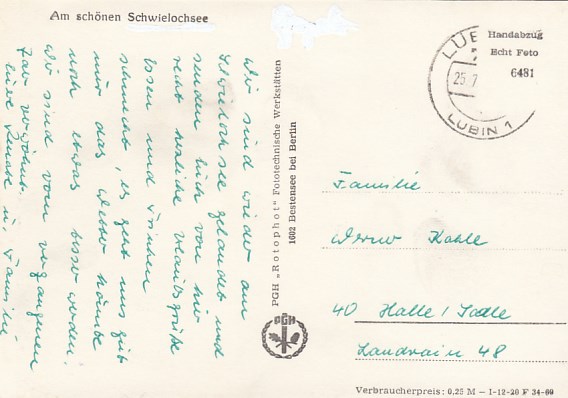 Am schönen Schwielochsee
Wir sind wieder am
Schwielochsee gelandet und
senden Euch von hier
recht herzliche Urlaubsgrüße
Essen und Trinken
schmeckt, es geht uns gut
nur das Wetter könnte
noch etwas besser werden.
Wir sind vom vergangenen
Jahr verwöhnt.
Eure Renate u. Familie
PGH „Rotophot" Fototechnische Werkstätten
1602 Bestensee bei Berlin
PGH
LÜB
25.7
LUBIN 1
Handabzug
Echt Foto
6481
Familie
Werner Kahle
40 Halle / Saale
Landrain 48
Verbraucherpreis: 0,25 M – I-12-20 F 34-69